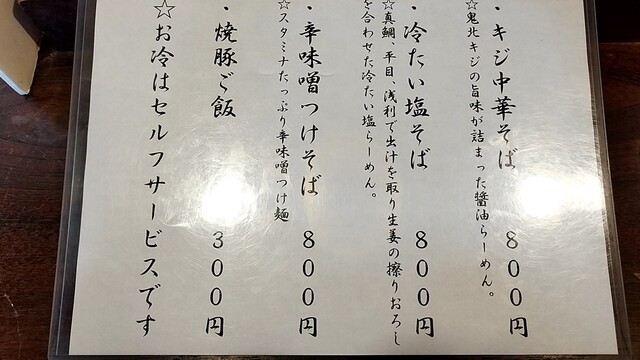 ・キジ中華そば 800円
☆鬼北キジの旨味が詰まった醤油らーめん。
・冷たい塩そば 800円
☆真鯛、平目、浅利で出汁を取り生姜の擦りおろし
を合わせた冷たい塩らーめん。
・辛味噌つけそば 800円
☆スタミナたっぷり辛味噌つけ麺
・焼豚ご飯 300円
☆お冷はセルフサービスです